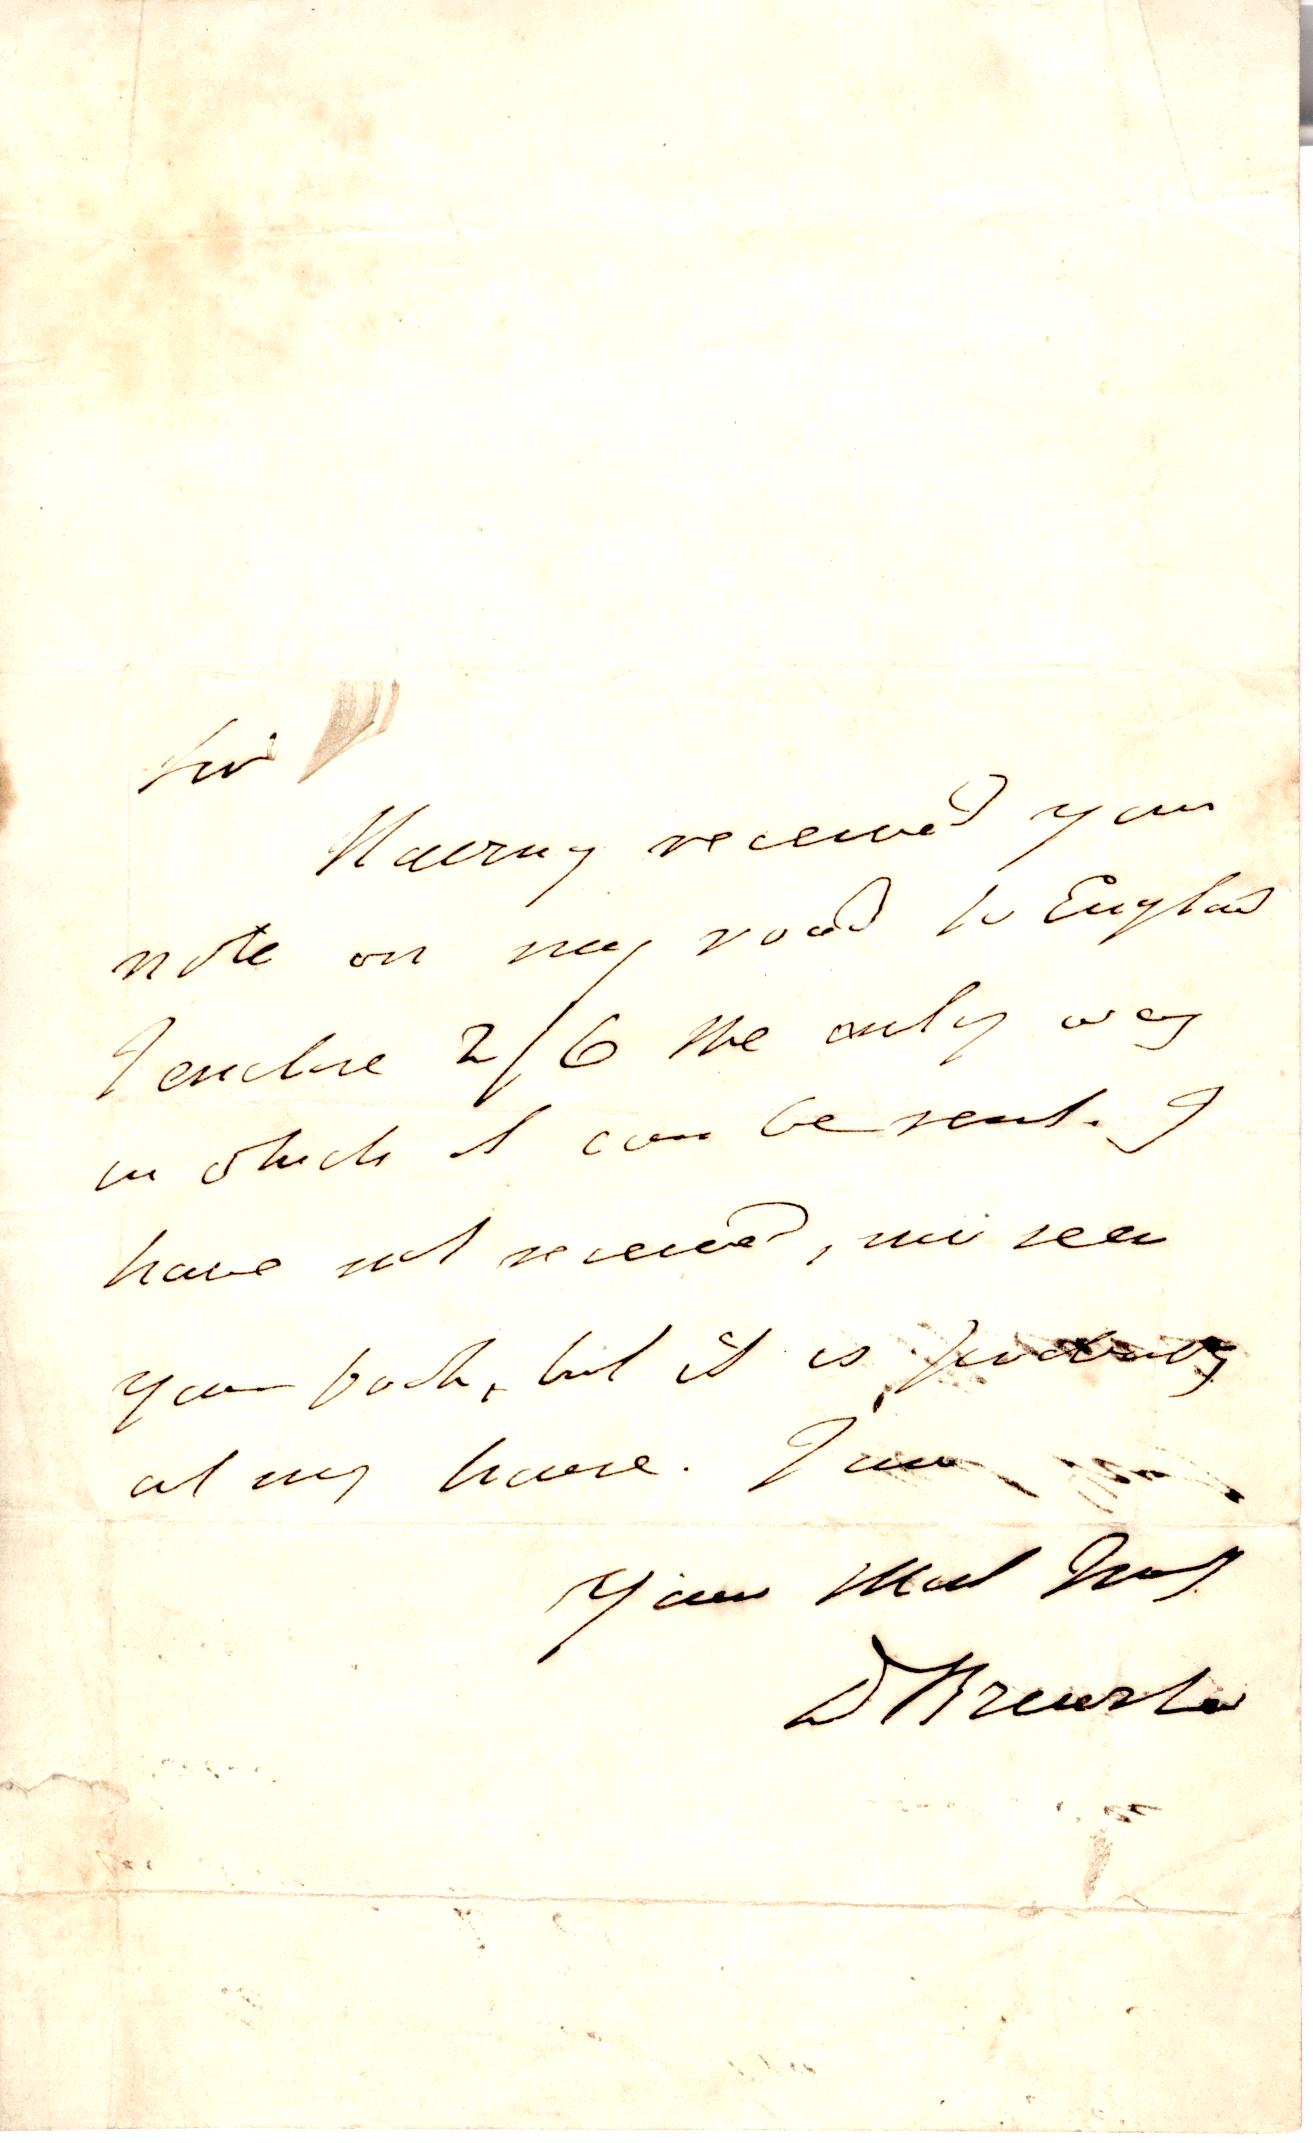 Sir
Having received your
note on my road to England
I enclose 2/6 the only way
in which it can be sent. I
have not received, nor seen
your book, but it is probably
at my house. I am
Your Most
D Brewster